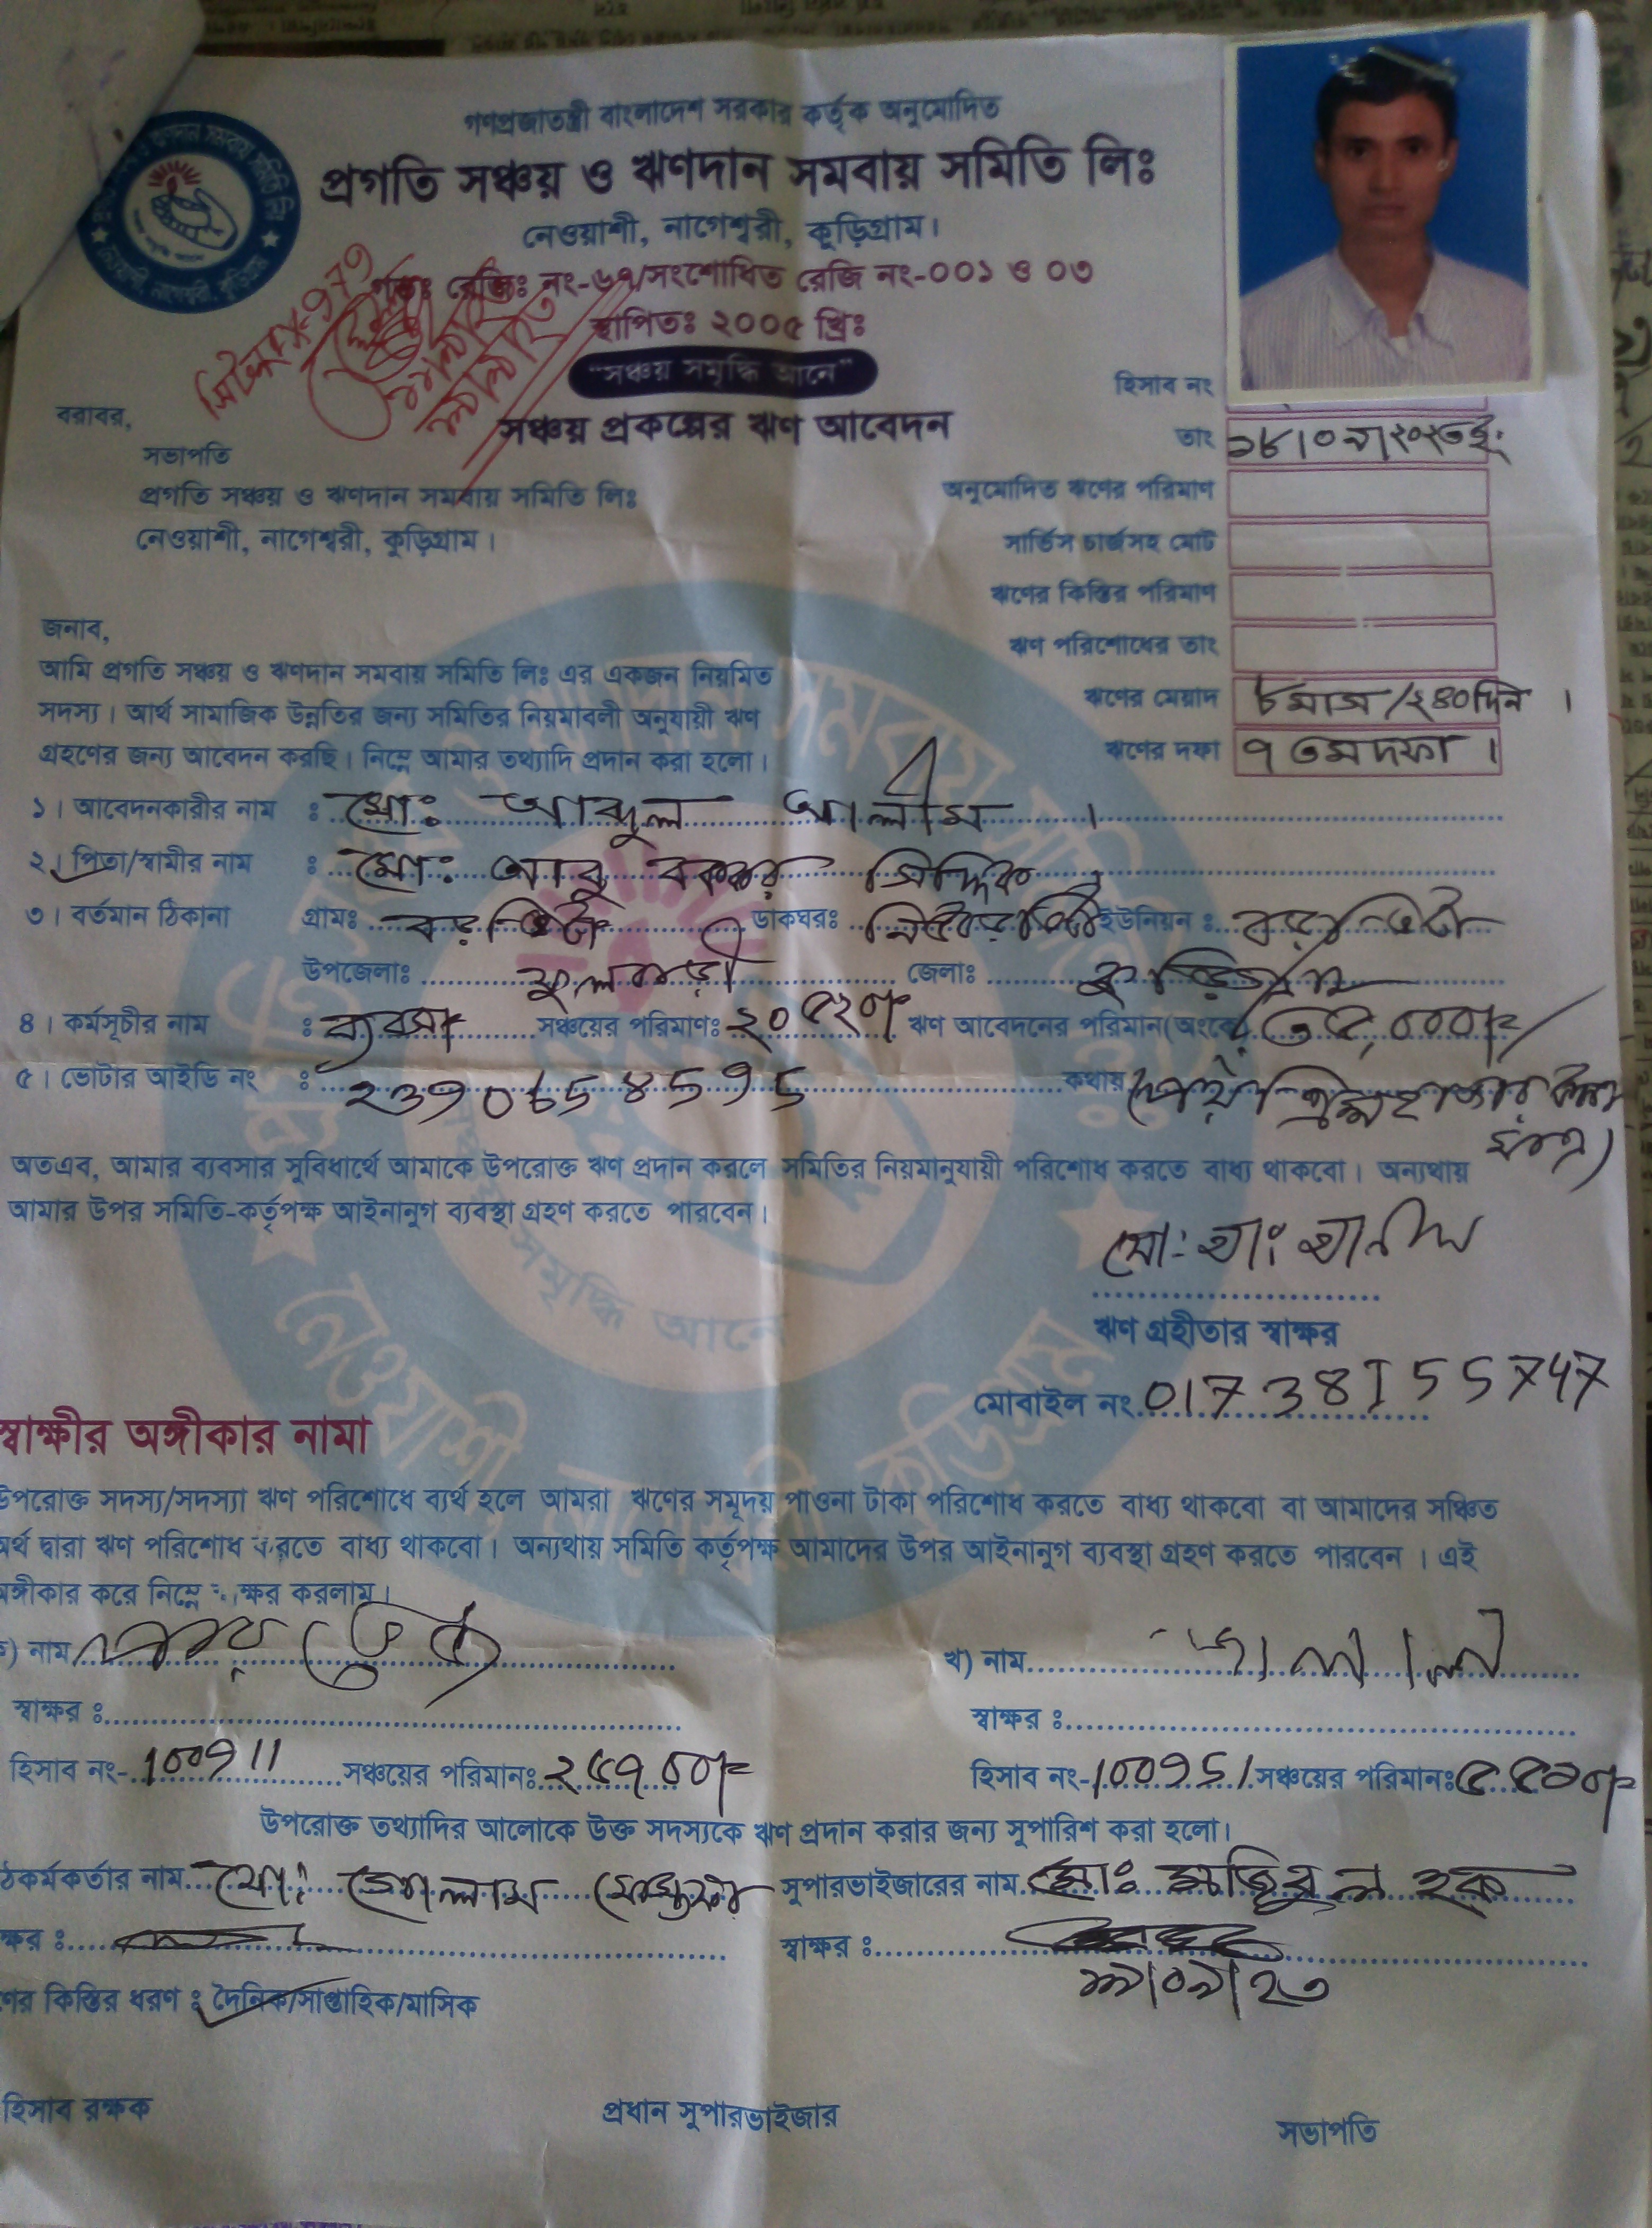 গণপ্রজাতন্ত্রী বাংলাদেশ সরকার কর্তৃক অনুমোদিত
প্রগতি সঞ্চয় ও ঋণদান সমবায় সমিতি লিঃ
নেওয়াশী, নাগেশ্বরী, কুড়িগ্রাম।
রেজিঃ নং-৬৭/সংশোধিত রেজি নং-০০১ ও ০৩
স্থাপিতঃ ২০০৫ খ্রিঃ
"সঞ্চয় সমৃদ্ধি আনে"
সঞ্চয় প্রকল্পের ঋণ আবেদন
হিসাব নং
তাং ১৮/০৯/২০২৩ইং
অনুমোদিত ঋণের পরিমাণ
সার্ভিস চার্জসহ মোট
ঋণের কিস্তির পরিমাণ
ঋণ পরিশোধের তাং
ঋণের মেয়াদ ৮মাস/২৪০দিন।
ঋণের দফা ৭তম দফা।
বরাবর,
সভাপতি
প্রগতি সঞ্চয় ও ঋণদান সমবায় সমিতি লিঃ
নেওয়াশী, নাগেশ্বরী, কুড়িগ্রাম।
জনাব,
আমি প্রগতি সঞ্চয় ও ঋণদান সমবায় সমিতি লিঃ এর একজন নিয়মিত
সদস্য। আর্থ সামাজিক উন্নতির জন্য সমিতির নিয়মাবলী অনুযায়ী ঋণ
গ্রহণের জন্য আবেদন করছি। নিম্নে আমার তথ্যাদি প্রদান করা হলো।
১। আবেদনকারীর নাম : মোঃ আব্দুল আলীম।
২। পিতা/স্বামীর নাম : মোঃ আবু বককর সিদ্দিক
৩। বর্তমান ঠিকানা গ্রামঃ বড়ভিটা ডাকঘরঃ ইউনিয়ন : বড়ভিটা
উপজেলাঃ ফুলবাড়ী জেলাঃ কুড়িগ্রাম
৪। কর্মসূচীর নাম : ব্যবসা সঞ্চয়ের পরিমাণঃ ২০৫২০/= ঋণ আবেদনের পরিমান(অংকে) ৩৫,০০০/=
৫। ভোটার আইডি নং : কথায় হাজার টাকা
মাত্র)
অতএব, আমার ব্যবসার সুবিধার্থে আমাকে উপরোক্ত ঋণ প্রদান করলে সমিতির নিয়মানুযায়ী পরিশোধ করতে বাধ্য থাকবো। অন্যথায়
আমার উপর সমিতি-কর্তৃপক্ষ আইনানুগ ব্যবস্থা গ্রহণ করতে পারবেন।
মোঃ আঃ আলীম
ঋণ গ্রহীতার স্বাক্ষর
মোবাইল নং 01738155747
স্বাক্ষীর অঙ্গীকার নামা
উপরোক্ত সদস্য/সদস্যা ঋণ পরিশোধে ব্যর্থ হলে আমরা ঋণের সমূদয় পাওনা টাকা পরিশোধ করতে বাধ্য থাকবো বা আমাদের সঞ্চিত
অর্থ দ্বারা ঋণ পরিশোধ করতে বাধ্য থাকবো। অন্যথায় সমিতি কর্তৃপক্ষ আমাদের উপর আইনানুগ ব্যবস্থা গ্রহণ করতে পারবেন। এই
অঙ্গীকার করে নিম্নে স্বাক্ষর করলাম।
নাম
খ) নাম জালাল
স্বাক্ষর :
স্বাক্ষর :
হিসাব নং- সঞ্চয়ের পরিমানঃ ২৫৭০০/=
হিসাব নং- সঞ্চয়ের পরিমানঃ
উপরোক্ত তথ্যাদির আলোকে উক্ত সদস্যকে ঋণ প্রদান করার জন্য সুপারিশ করা হলো।
ঠকর্মকর্তার নাম মোঃ গোলাম মোস্তফা সুপারভাইজারের নাম মোঃ হক
ক্ষর : স্বাক্ষর :
১৯/০৯/২৩
কিস্তির ধরণ : দৈনিক/সাপ্তাহিক/মাসিক
হিসাব রক্ষক
প্রধান সুপারভাইজার
সভাপতি